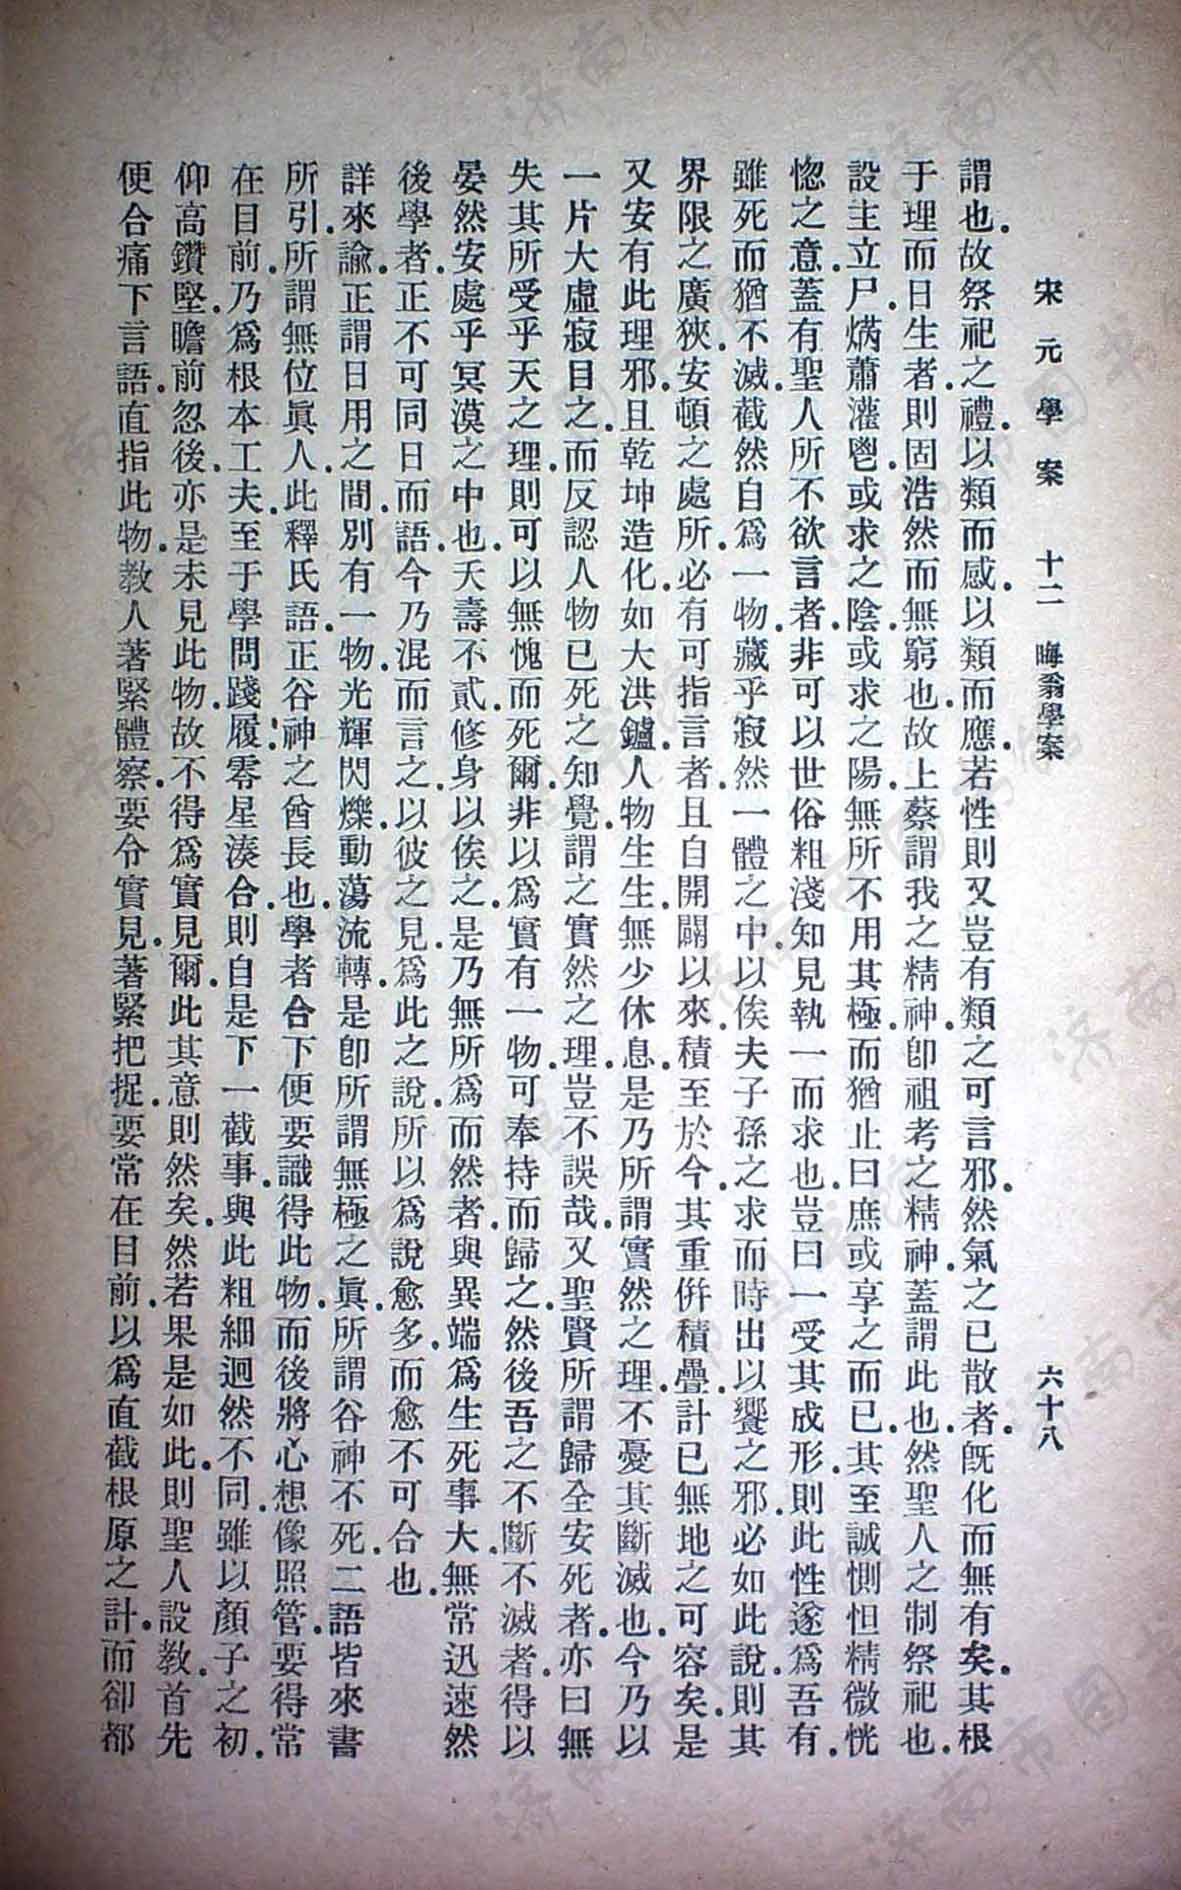 宋元學案 十二 晦翁學案 六十八
謂也.故祭祀之禮.以類而感.以類而應.若性則又豈有類之可言邪.然氣之已散者.旣化而無有矣.其根
于理而日生者.則固浩然而無窮也.故上蔡謂我之精神.卽祖考之精神.蓋謂此也.然聖人之制祭祀也.
設主立尸.焫蕭灌鬯.或求之陰.或求之陽.無所不用其極.而猶止曰庶或享之而已.其至誠惻怛精微恍
惚之意.蓋有聖人所不欲言者.非可以世俗粗淺知見執一而求也.豈曰一受其成形.則此性遂爲吾有.
雖死而猶不滅.截然自爲一物.藏乎寂然一體之中.以俟夫子孫之求而時出以饗之邪.必如此說.則其
界限之廣狹.安頓之處所.必有可指言者.且自開闢以來.積至於今.其重倂積疊.計已無地之可容矣.是
又安有此理邪.且乾坤造化.如大洪鑪.人物生生.無少休息.是乃所謂實然之理.不憂其斷滅也.今乃以
一片大虛寂目之.而反認人物已死之知覺.謂之實然之理.豈不誤哉.又聖賢所謂歸全安死者.亦曰無
失其所受乎天之理.則可以無愧而死爾.非以爲實有一物.可奉持而歸之.然後吾之不斷不滅者.得以
晏然安處乎冥漠之中也.夭壽不貳.修身以俟之.是乃無所爲而然者.與異端爲生死事大.無常迅速然
後學者.正不可同日而語.今乃混而言之.以彼之見.爲此之說.所以爲說愈多.而愈不可合也.
詳來諭.正謂日用之間.別有一物.光輝閃爍.動蕩流轉.是卽所謂無極之眞.所謂谷神不死.二語皆來書
所引.所謂無位眞人.此釋氏語.正谷神之酋長也.學者合下便要識得此物.而後將心想像照管.要得常
在目前.乃爲根本工夫.至于學問踐履.零星湊合.則自是下一截事.與此粗細迥然不同.雖以顏子之初.
仰高鑽堅.瞻前忽後.亦是未見此物.故不得爲實見爾.此其意則然矣.然若果是如此.則聖人設教.首先
便合痛下言語.直指此物.教人著緊體察.要令實見.著緊把捉.要常在目前.以爲直截根原之計.而卻都